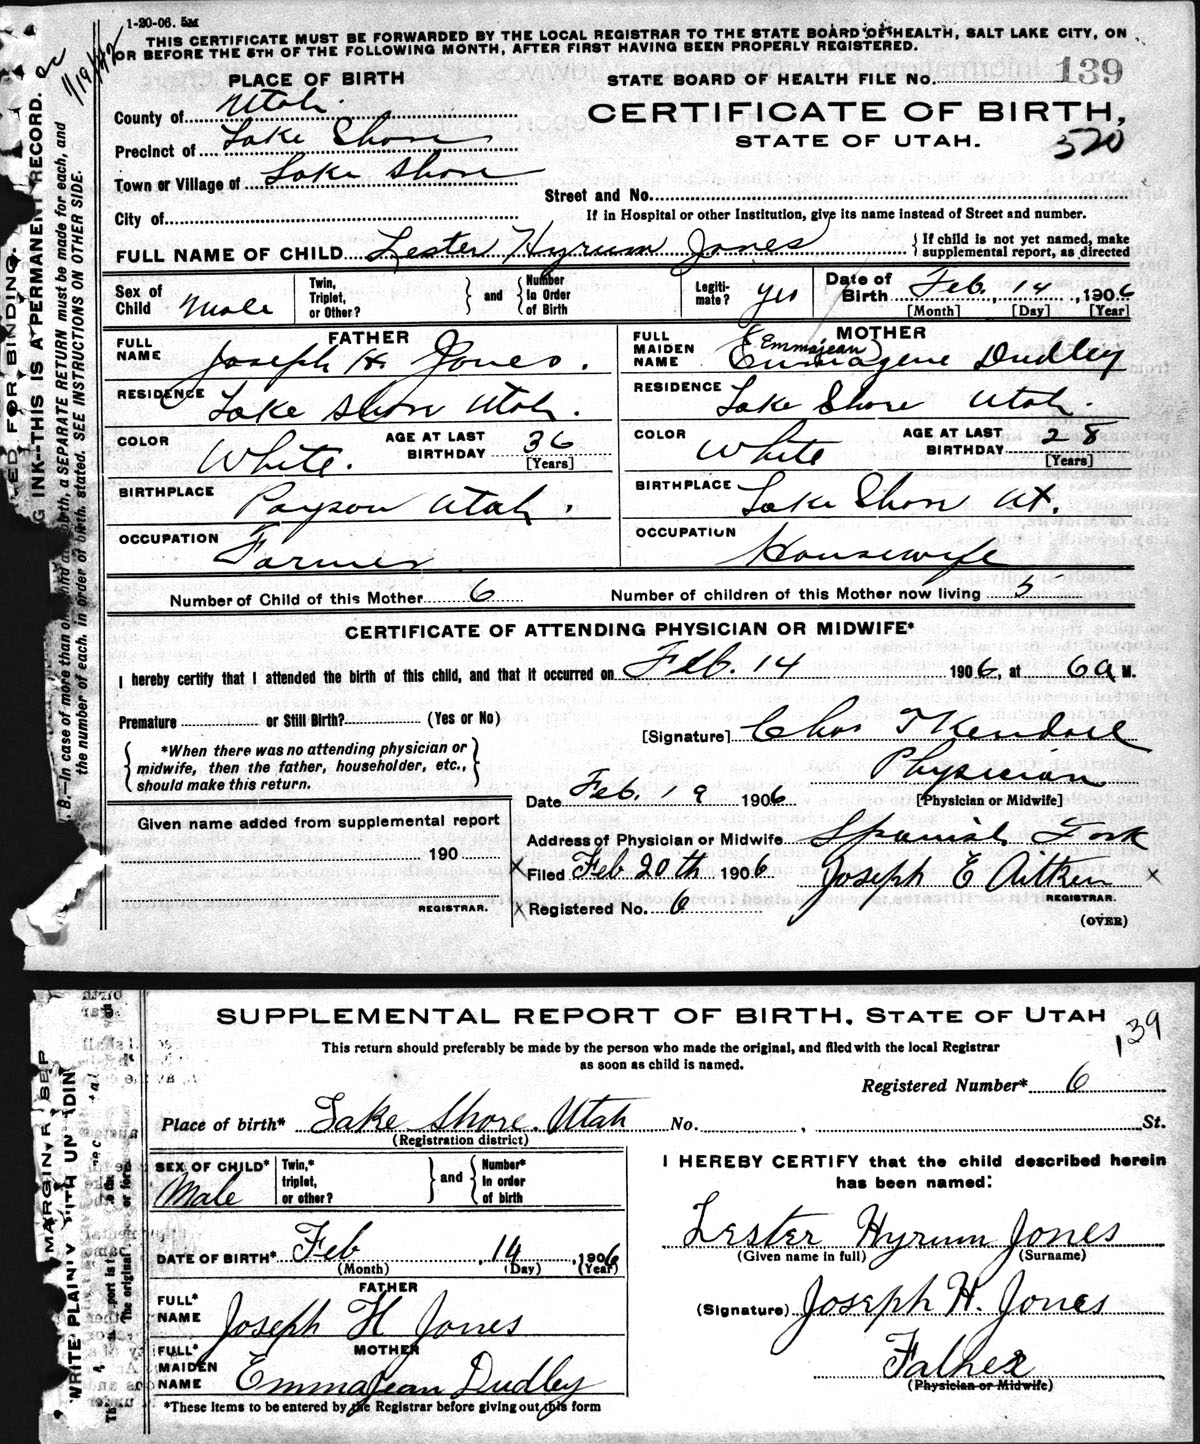 1-20-06. 5M
THIS CERTIFICATE MUST BE FORWARDED BY THE LOCAL REGISTRAR TO THE STATE BOARD OF HEALTH, SALT LAKE CITY, ON
OR BEFORE THE 5TH OF THE FOLLOWING MONTH, AFTER FIRST HAVING BEEN PROPERLY REGISTERED.
PLACE OF BIRTH
STATE BOARD OF HEALTH FILE No. 139
County of Utah.
CERTIFICATE OF BIRTH,
STATE OF UTAH.
520
Precinct of Lake Shore
Town or Village of Lake Shore
Street and No.
City of
If in Hospital or other Institution, give its name instead of Street and number.
FULL NAME OF CHILD Lester Hyrum Jones { If child is not yet named, make
supplemental report, as directed
Sex of Child Male Twin, Triplet, or Other? } and { Number In Order of Birth Legiti-mate? yes Date of Birth Feb. 14, 1906
[Month] [Day] [Year]
FATHER
FULL NAME Joseph H. Jones.
RESIDENCE Lake Shore Utah.
COLOR White. AGE AT LAST BIRTHDAY 36 [Years]
BIRTHPLACE Payson Utah.
OCCUPATION Farmer
MOTHER
FULL MAIDEN NAME (Emmajean) Emmagene Dudley
RESIDENCE Lake Shore Utah.
COLOR White AGE AT LAST BIRTHDAY 28 [Years]
BIRTHPLACE Lake Shore Ut.
OCCUPATION Housewife
Number of Child of this Mother 6 Number of children of this Mother now living 5
CERTIFICATE OF ATTENDING PHYSICIAN OR MIDWIFE*
I hereby certify that I attended the birth of this child, and that it occurred on Feb. 14 1906, at 6 a M.
Premature or Still Birth? (Yes or No)
[Signature] Chas Kendall
{ *When there was no attending physician or
midwife, then the father, householder, etc.,
should make this return. }
Physician
[Physician or Midwife]
Date Feb. 19 1906
Given name added from supplemental report
190
REGISTRAR.
Address of Physician or Midwife Spanish Fork
X Filed Feb 20th 1906 Joseph E Aitken X
REGISTRAR.
X Registered No. 6
(OVER)
SUPPLEMENTAL REPORT OF BIRTH, STATE OF UTAH
139
This return should preferably be made by the person who made the original, and filed with the local Registrar
as soon as child is named.
Registered Number* 6
Place of birth* Lake Shore. Utah No. , St.
(Registration district)
SEX OF CHILD* Male Twin,* triplet, or other? } and { Number* In order of birth
DATE OF BIRTH* Feb, 14, 1906
(Month) (Day) (Year)
FATHER
FULL* NAME Joseph H Jones
MOTHER
FULL* MAIDEN NAME Emmajean Dudley
*These items to be entered by the Registrar before giving out this form
I HEREBY CERTIFY that the child described herein
has been named:
Lester Hyrum Jones
(Given name in full) (Surname)
(Signature) Joseph H. Jones
Father
(Physician or Midwife)